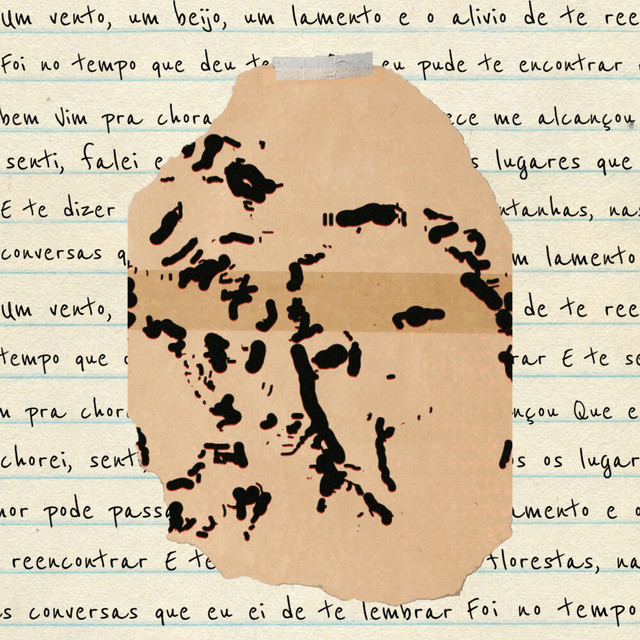 Um vento, um beijo, um lamento e o alivio de te ree
Foi no tempo que deu te eu pude te encontrar
bem Vim pra chora ece me alcançou
senti, falei e s lugares que
E te dizer ntanhas, nas
conversas q m lamento
Um vento, de te ree
tempo que rar E te se
m pra chor nçou Que e
chorei, sent s os lugar
mor pode passa amento e o
reencontrar E te florestas, na
s conversas que eu ei de te lembrar Foi no tempo